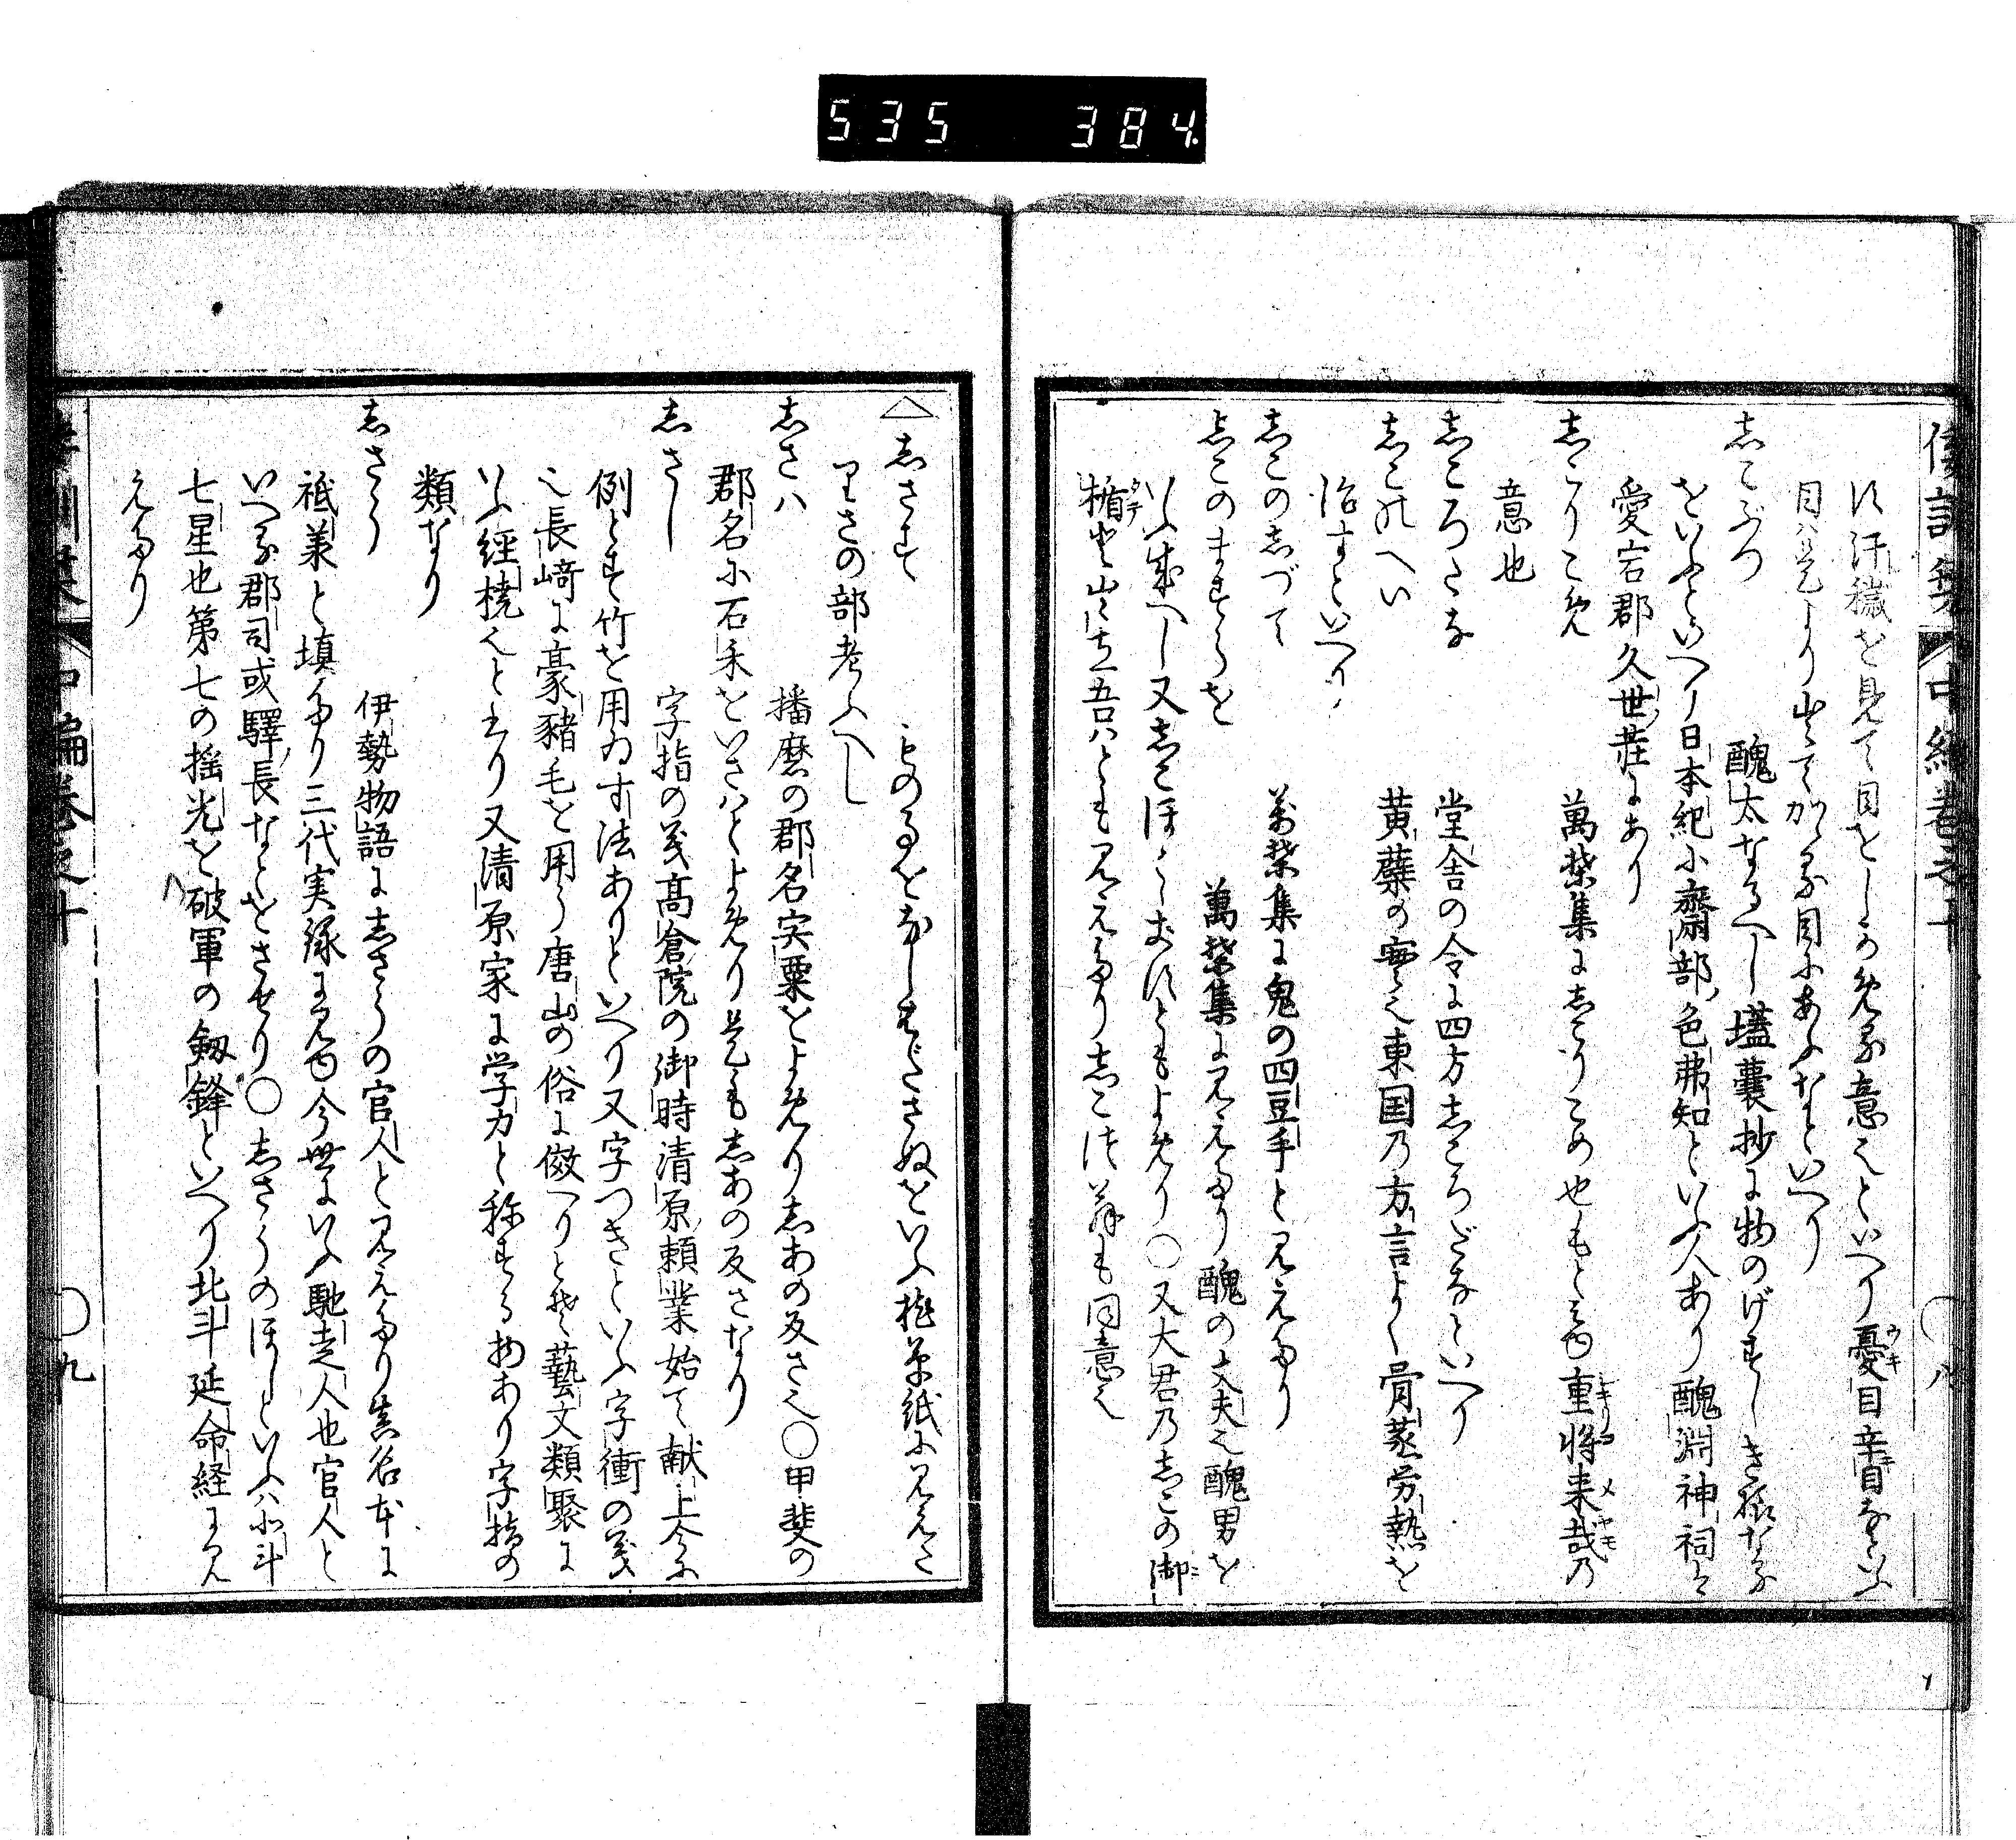 535 384
倭訓栞 中編巻之十 ○八
は汗穢を見て目をしかめる意也といへり憂目辛目なといふ
目は是より出てかゝる目にあふなといへり
志こぶつ 醜太なるへし壒囊抄に物のげすしき様なる
をいふといへり日本紀に齋部色弗知といふ人あり醜淵神祠は
愛宕郡久世荘にあり
志こりこめ 萬葉集に志こりこめ也もとみゆ重将来哉の
意也
志ころたな 堂舎の令に四方志ころだなといへり
志このへい 黄蘗の実也東国乃方言よく骨蒸労熱を
治すといへり
志この志づて 万葉集に鬼の四豆手と見えたり
志このますらを 萬葉集に見えたり醜の丈夫也醜男を
いふ成へし又志こほとゝきすともよめり○又大君乃志この御
楯と出立吾はとも見えたり志こつ翁も同意也
△志さす とのゐをなしもださぬをいふ枕草紙に見えた
りさの部考ふへし
志さは 播磨の郡名宍粟をよめり志あの反さ也○甲斐の
郡名に石禾をいさはとよめり是も志あの反さなり
志さし 字指の義高倉院の御時清原頼業始て献上今に
例とす竹を用ゐす法ありといへり又字つきといふ字衝の義
也長﨑に豪豬毛を用う唐山の俗に倣へりとそ藝文類聚に
いふ經橈也と云り又清原家に学力と称する物あり字指の
類なり
志さう 伊勢物語に志さうの官人と見えたり真名本に
祗羕と填たり三代実録に見ゆ今世にいふ馳走人也官人と
いへる郡司或驛長なとをさせり○志さうのほしといふハ北斗
七星也第七の揺光を破軍の劔鋒といへり北斗延命経に見
えたり
倭訓栞 中編巻之十 ○九